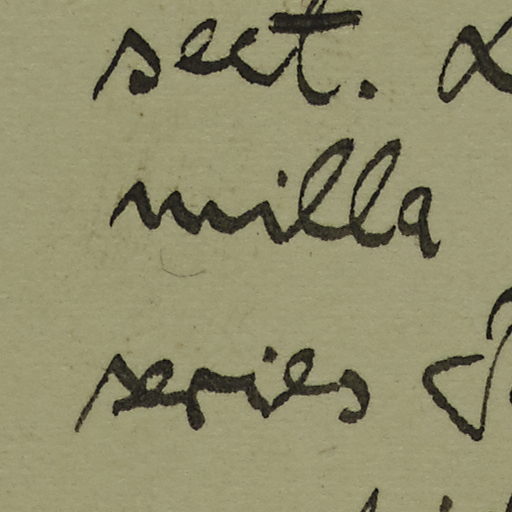 sect.
milla
series